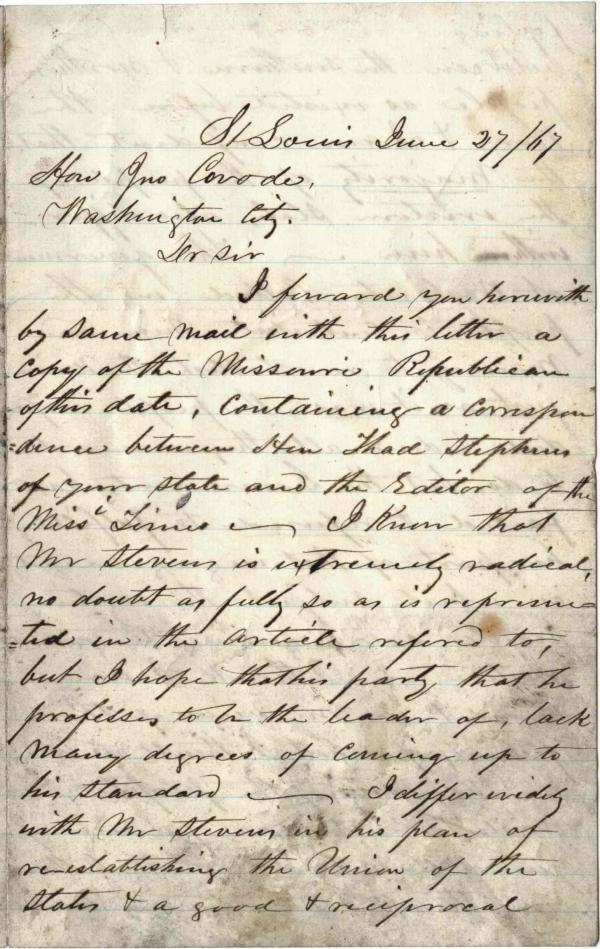 St Louis June 27/67
Hon Jno Covode,
Washington City.
Dr Sir
I forward you herewith
by same mail with this letter a
copy of the Missouri Republican
of this date, containing a correspon
=dence between Hon Thad Stephens
of your state and the Editor of the
Missi Times — I know that
Mr Stevens is extremely radical,
no doubt as fully so as is represen=
=ted in the article refered to,
but I hope that his party, that he
professes to be the leader of, lack
many degrees of coming up to
his standard — I differ widely
with Mr Stevens in his plan of
re-establishing the Union of the
States & a good & reciprocal